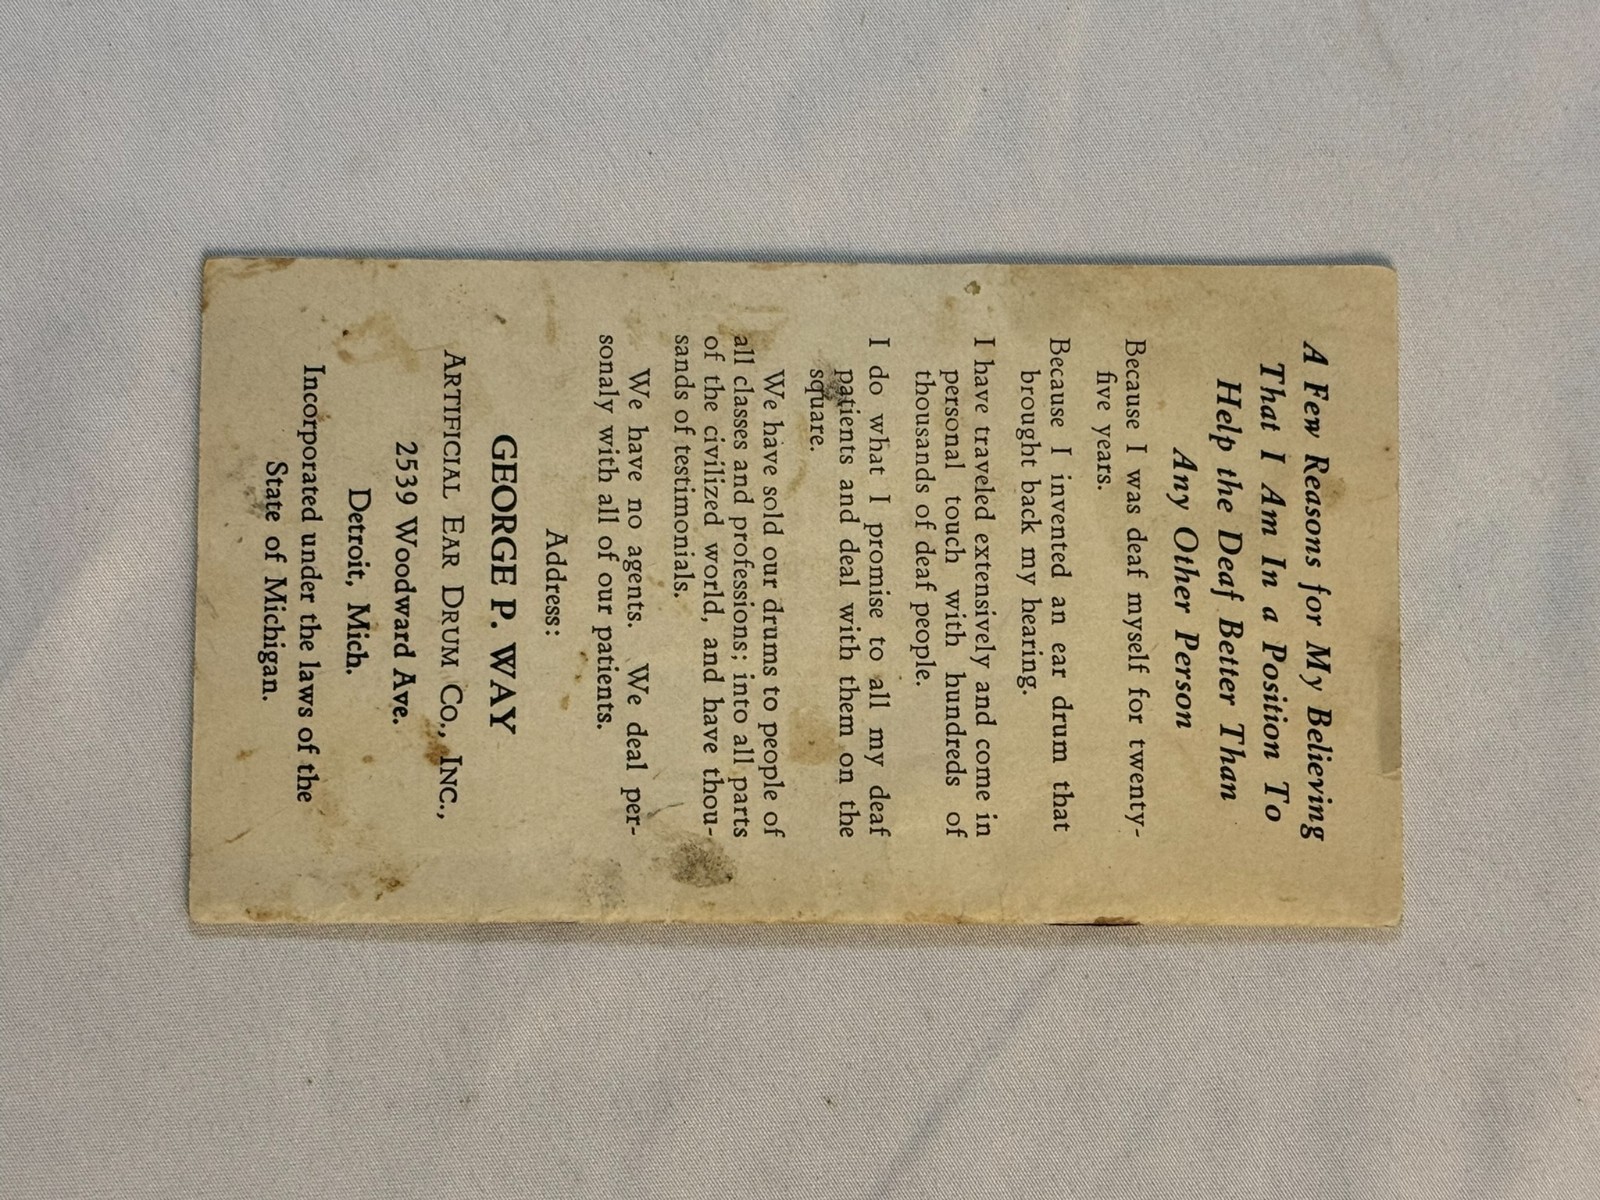 A Few Reasons for My Believing
That I Am In a Position To
Help the Deaf Better Than
Any Other Person
Because I was deaf myself for twenty-
five years.
Because I invented an ear drum that
brought back my hearing.
I have traveled extensively and come in
personal touch with hundreds of
thousands of deaf people.
I do what I promise to all my deaf
patients and deal with them on the
square.
We have sold our drums to people of
all classes and professions; into all parts
of the civilized world, and have thou-
sands of testimonials.
We have no agents. We deal per-
sonaly with all of our patients.
Address:
GEORGE P. WAY
ARTIFICIAL EAR DRUM CO., INC.,
2539 Woodward Ave.
Detroit, Mich.
Incorporated under the laws of the
State of Michigan.